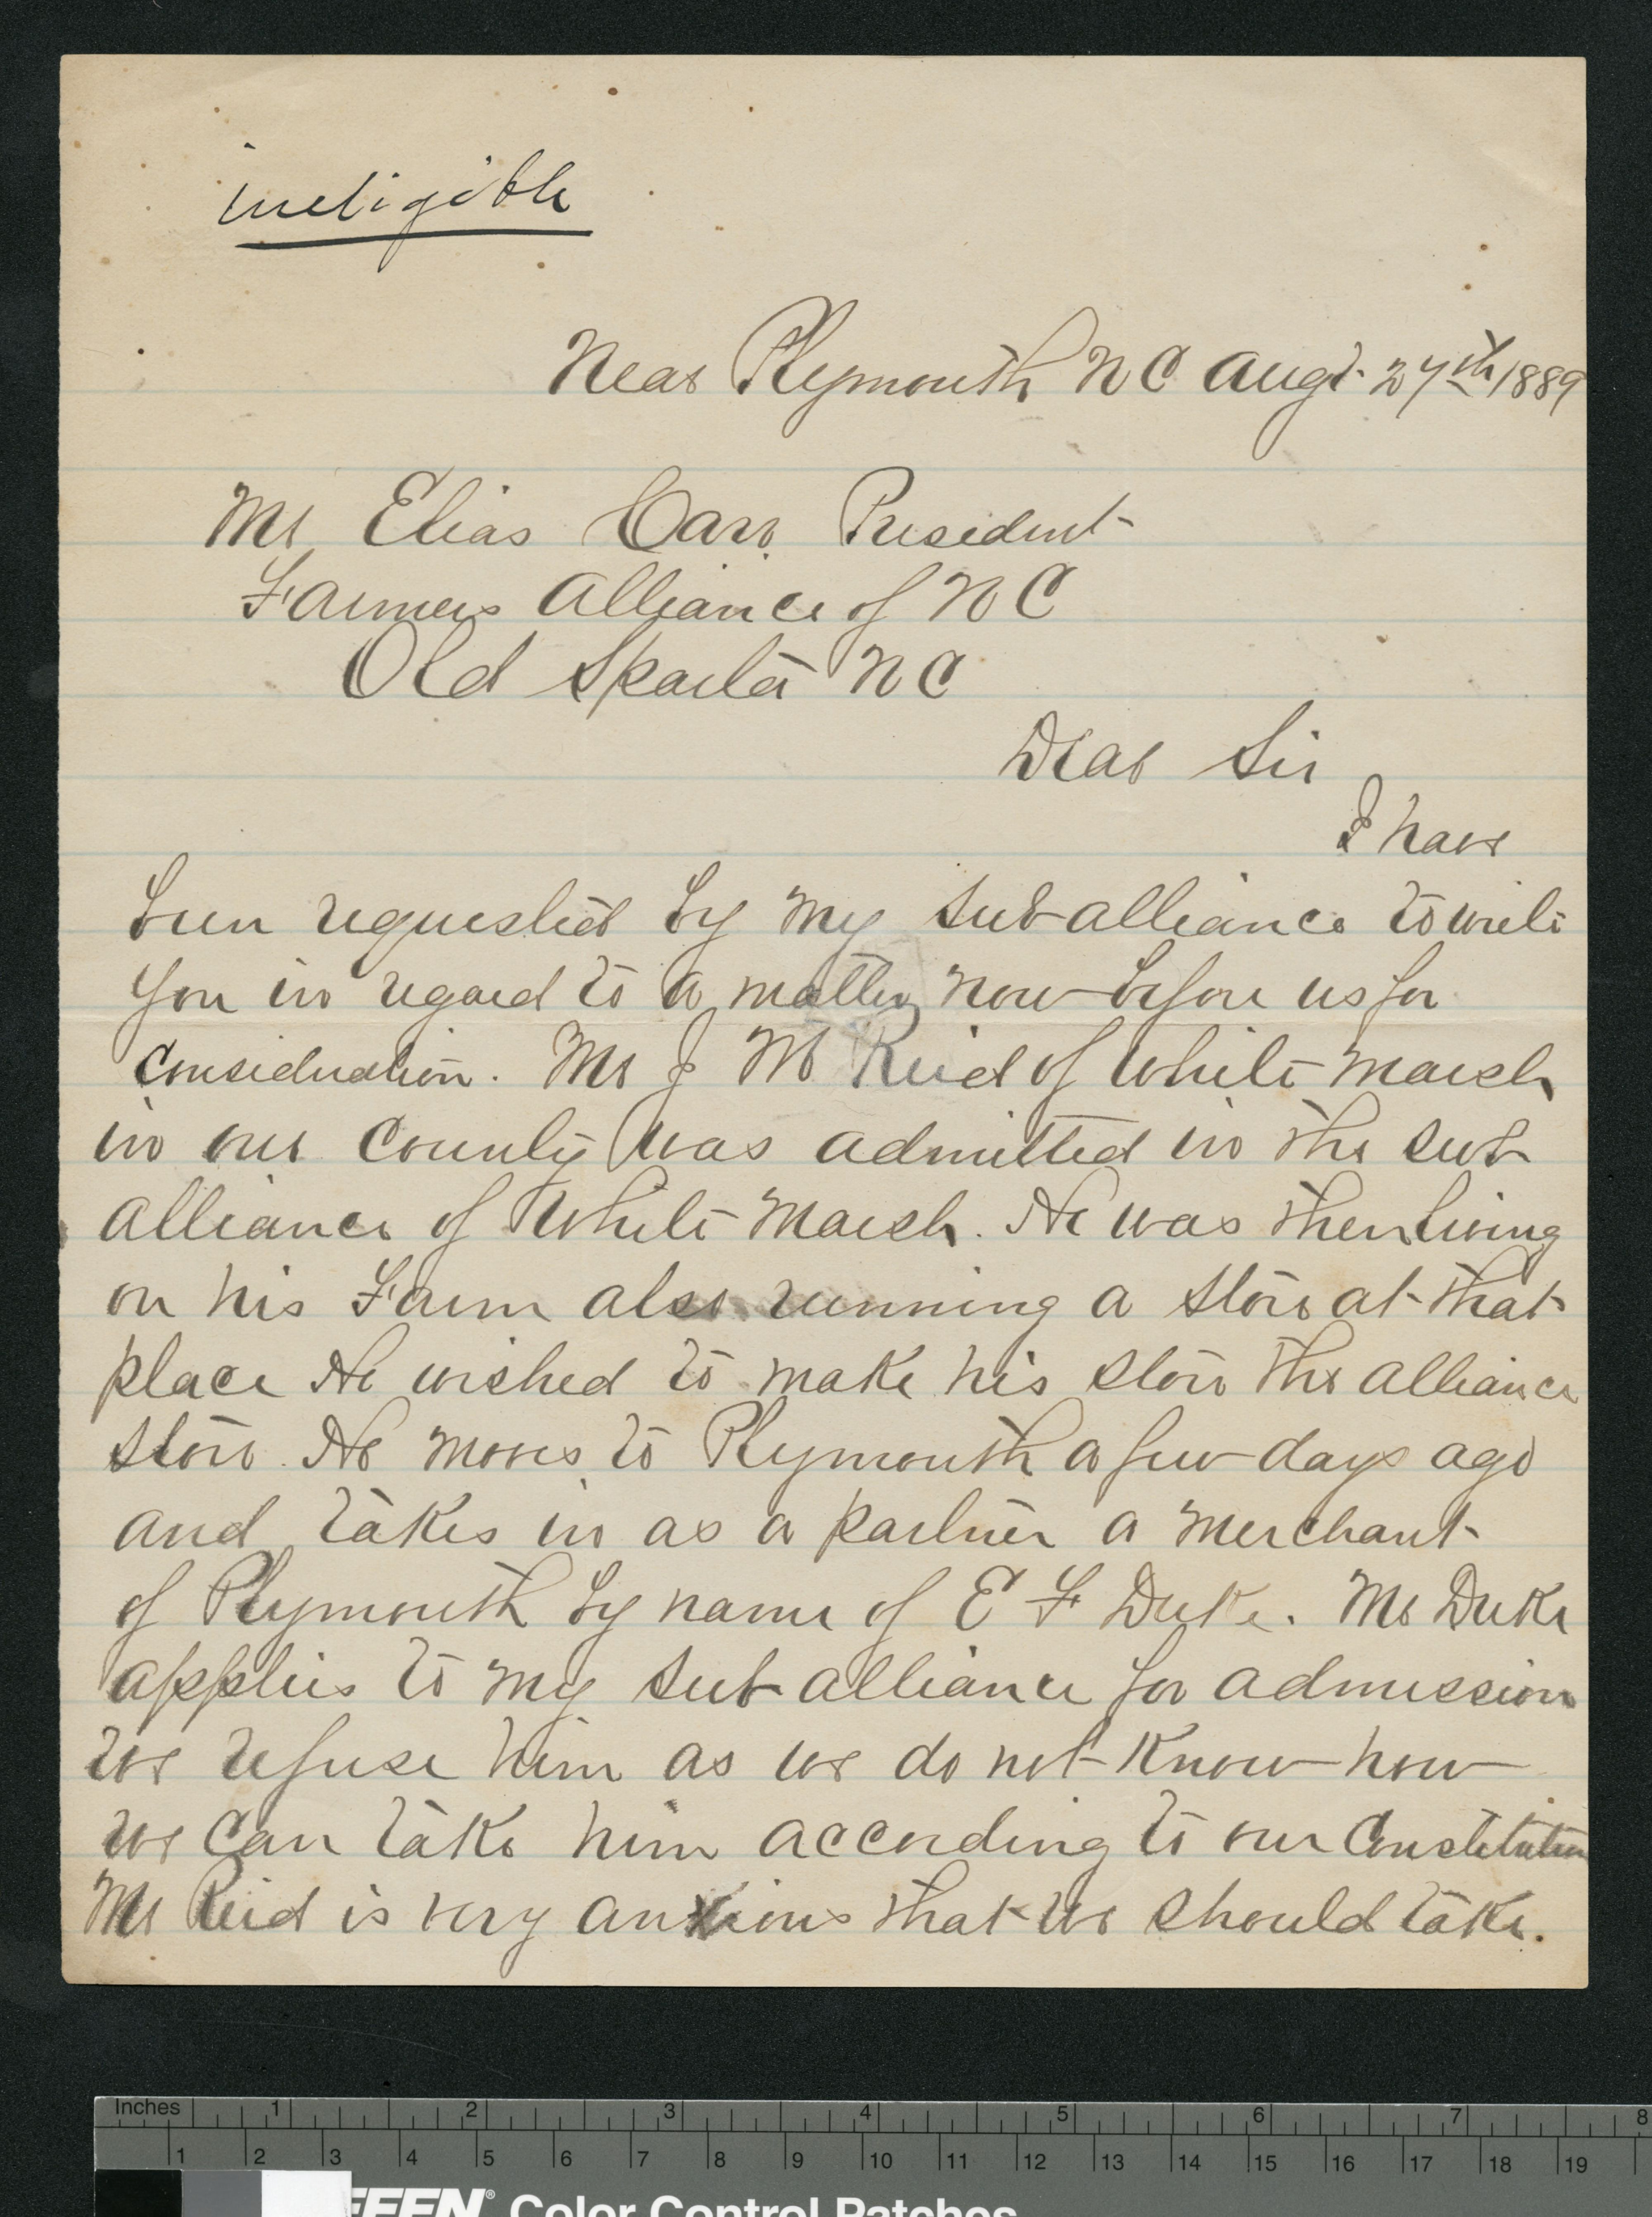 ineligible
Near Plymouth N C Augt. 27th 1889
Mr Elias Carr President
Farmers Alliance of N C
Old Sparta N C
Dear Sir
I have
been requested by my Sub alliance to write
you in regard to a matter now before us for
Consideration. Mr J M Reid of White Marsh
in our County was admitted in the sub
alliance of White Marsh. He was then living
on his Farm also running a store at that
place He wished to make his store the alliance
store. He moves to Plymouth a few days ago
and takes in as a partner a Merchant
of Plymouth by name of E F Duke. Mr Duke
applies to my Sub alliance for admission
we refuse him as we do not Know how
we can take him according to our Constitution
Mr Reid is very anxious that we should take.
Inches 1 2 3 4 5 6 7 8
1 2 3 4 5 6 7 8 9 10 11 12 13 14 15 16 17 18 19
Color Control Patches